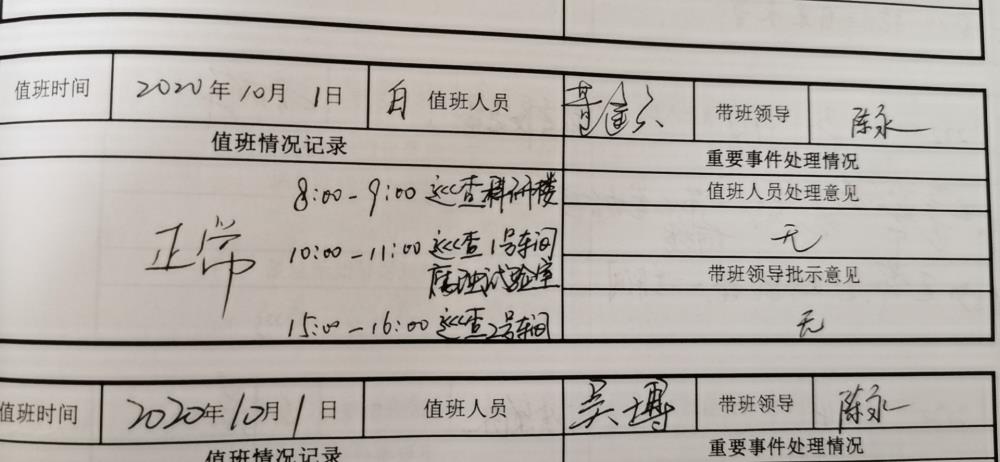 值班时间 2020年10月1日 白 值班人员 带班领导 陈永
值班情况记录 重要事件处理情况
8:00-9:00 巡查科研楼 值班人员处理意见
正常 10:00-11:00 巡查1号车间 无
腐蚀试验室 带班领导批示意见
15:00-16:00 巡查2号车间 无
值班时间 2020年10月1日 值班人员 吴博 带班领导 陈永
值班情况记录 重要事件处理情况